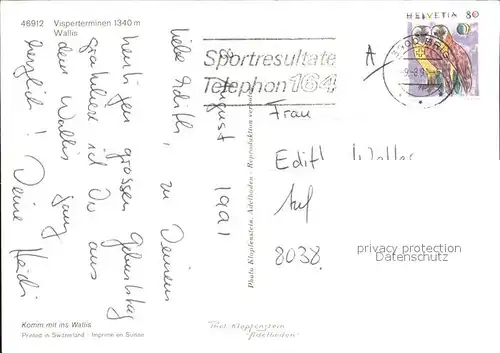 46912 Visperterminen 1340 m
Wallis
HELVETIA 80
Sportresultate
Telephon 164
A
8. August 1991
liebe Edith, zu Deinem
heutigen grossen Geburtstag
gratuliere ich Dir aus
dem Wallis ganz
herzlich! Deine Heidi
Frau
Edith
8038
Photo Klopfenstein, Adelboden - Reproduktion verboten
privacy protection
Datenschutz
Komm mit ins Wallis
Printed in Switzerland - Imprimé en Suisse
Phot. Klopfenstein
"Adelboden"